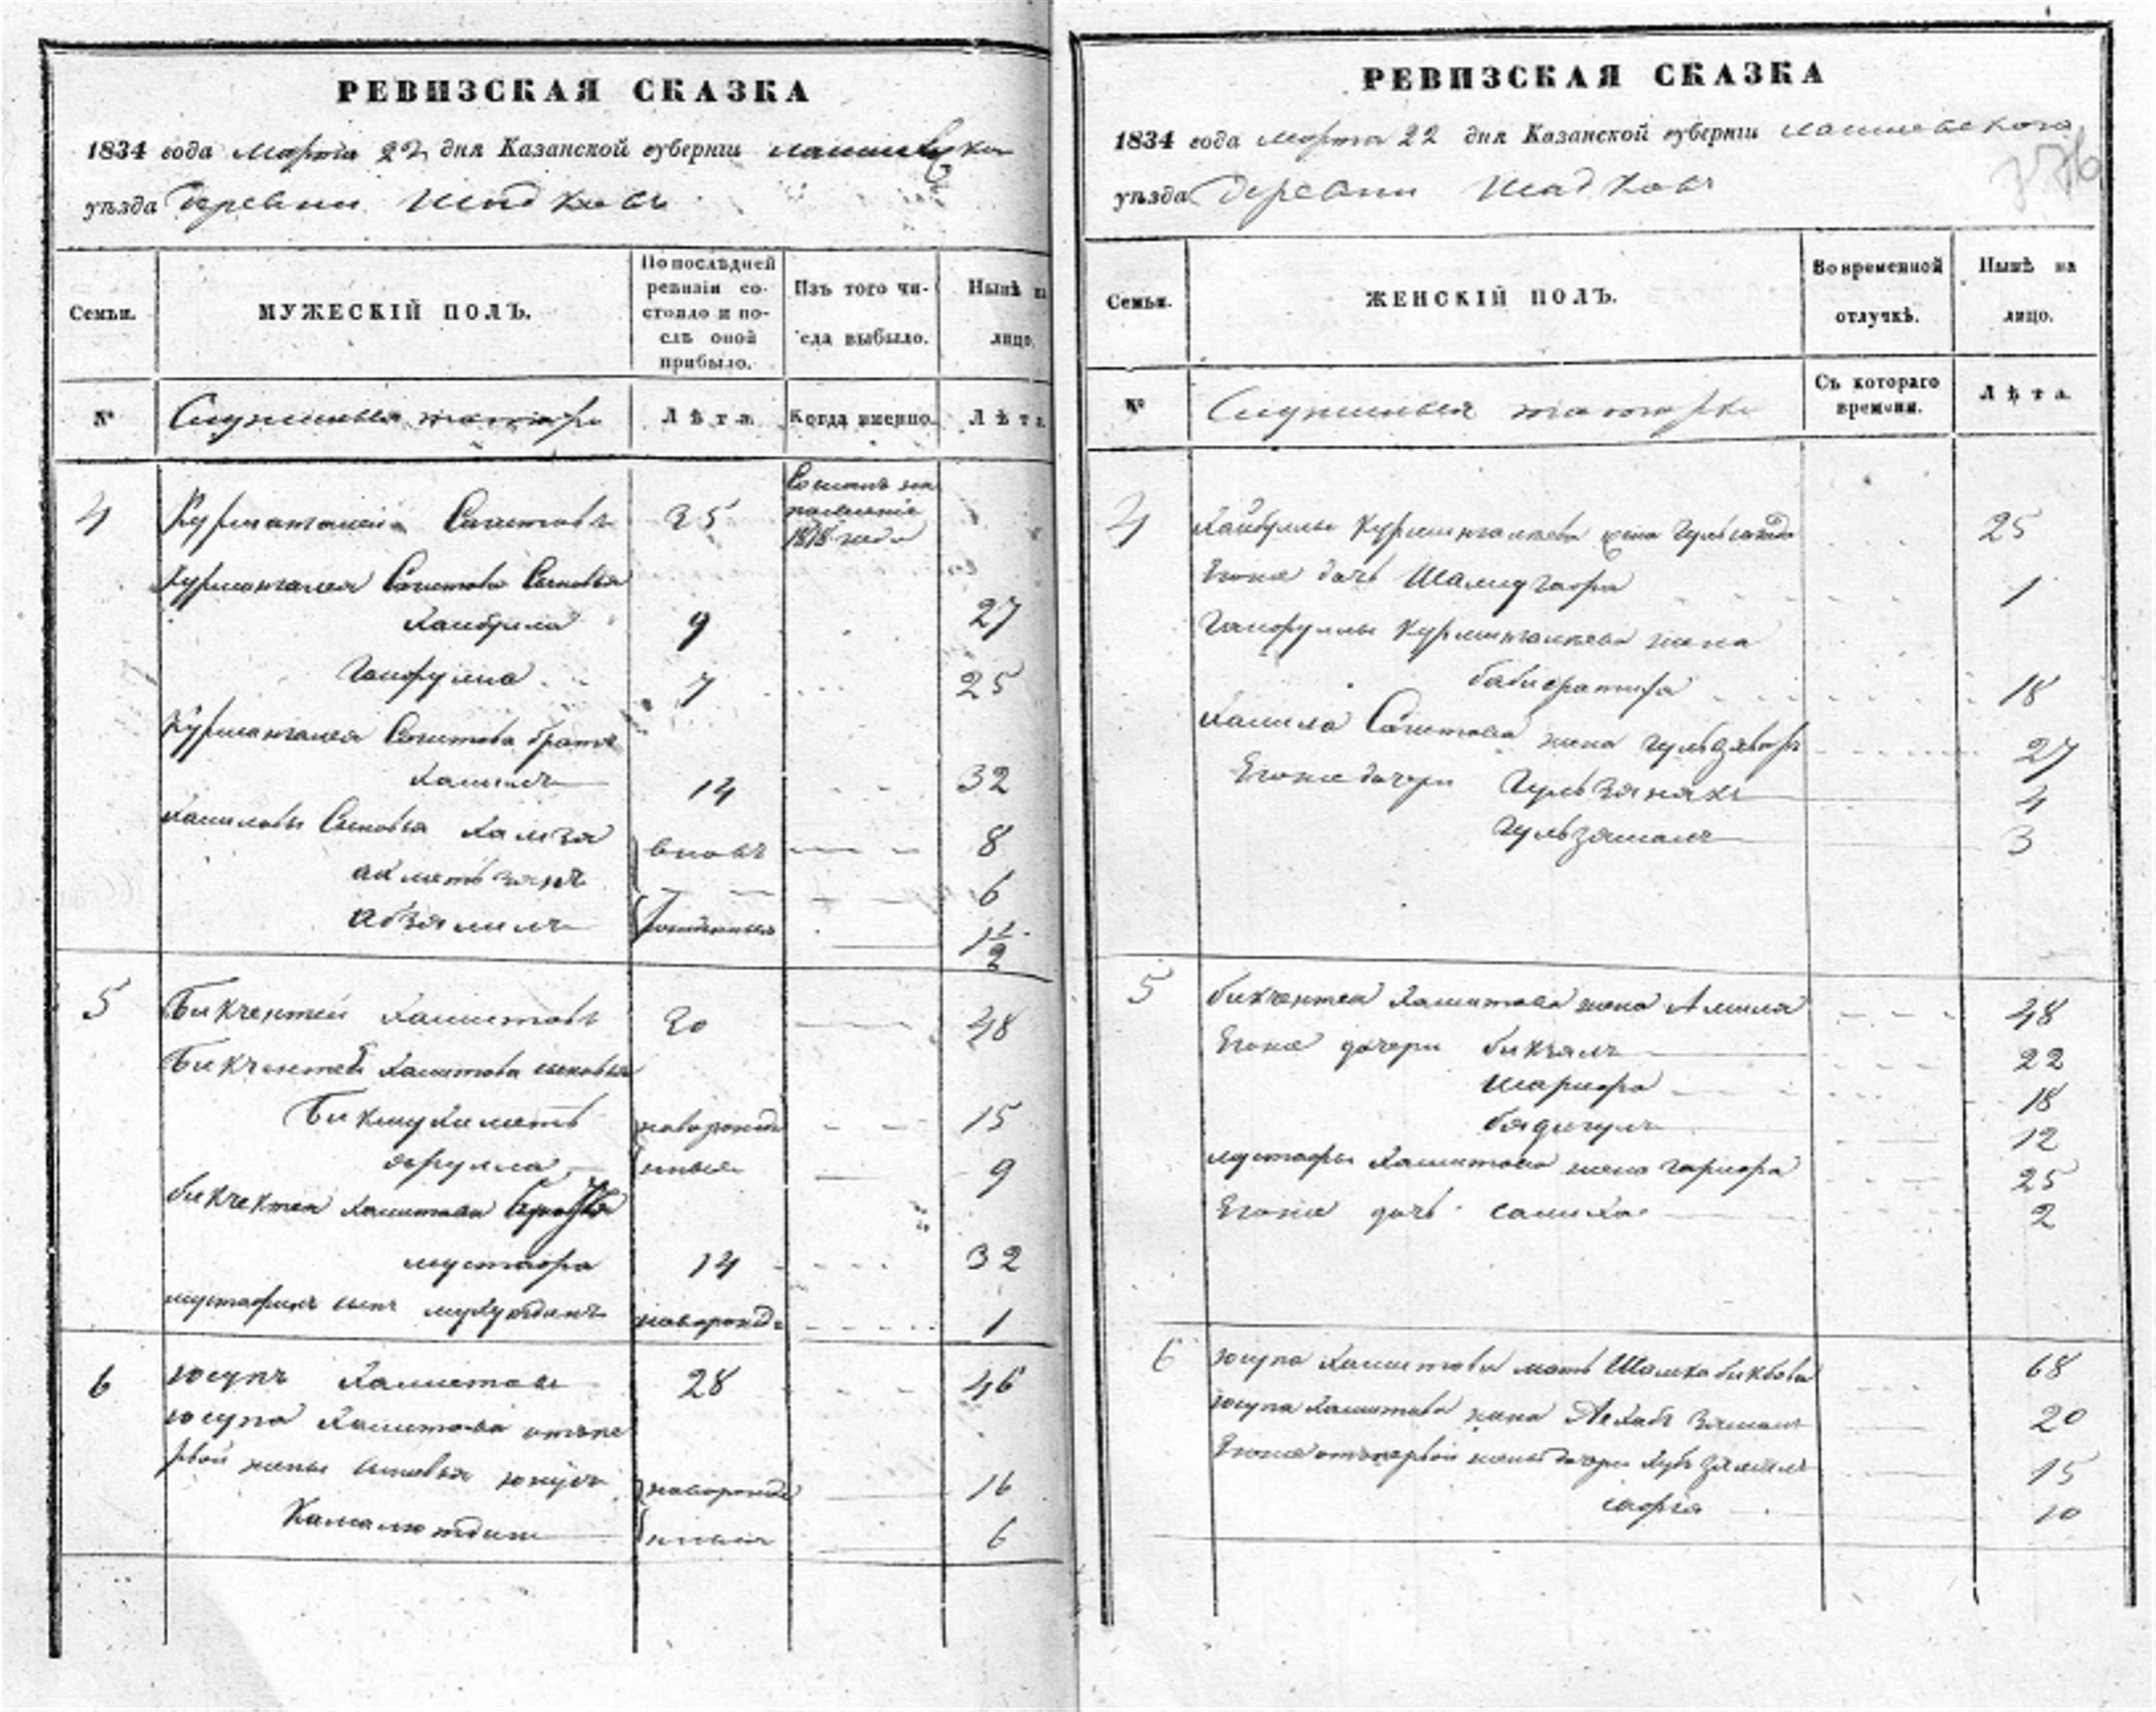 РЕВИЗСКАЯ СКАЗКА
1834 года Марта 22 дня Казанской губерніи лаишевска
уѣзда Деревни Шадковъ
Семьи.
МУЖЕСКІЙ ПОЛЪ.
По послѣдней ревизіи состояло и послѣ оной прибыло.
Изъ того числа выбыло.
Нынѣ на лицо.
№
Служилыя татары
Лѣта.
Когда именно.
Лѣта.
4 Курмангалей Сагитовъ 35 Сосланъ на поселение 1818 года
Курмангалея Сагитова Сыновья
Хайбулла 9 27
Гапфулла 7 25
Курмангалея Сагитова братъ
Халилъ 14 32
Халиловы Сыновья Хамзя вновь 8
ахметьзянъ 6
абзялилъ рожденныя 1 1/2
5 Бикчентей Хамитовъ 30 48
Бикчентея Хамитова сыновья
Бикмухаметь новорожде 15
нныя 9
бикчентея Хамитова
мустафа 14 32
мустафинъ сынъ новорожде 1
6 юсупъ Хамитовъ 28 46
юсупа Хамитова отъ пе
рвой жены сыновья юнусъ новорожде 16
Камалютдинъ нныя 6
РЕВИЗСКАЯ СКАЗКА
1834 года Марта 22 дня Казанской губерніи лаишевскаго
уѣзда Деревни Шадковъ
Семьи.
ЖЕНСКІЙ ПОЛЪ.
Во временной отлучкѣ.
Нынѣ на лицо.
№
Служилыя татарки
Съ котораго времени.
Лѣта.
4 Хайбуллы Курмангалеева жена 25
Егоже дочь 1
Гапфуллы Курмангалеева жена
18
Халила Сагитова жена 27
Егоже дочери 4
Гульзямалъ 3
5 бикчентея Хамитова жена 48
Егоже дочери 22
Шарифа 18
бядигулъ 12
мустафы Хамитова жена гарифа 25
Егоже дочь салиха 2
6 юсупа Хамитова мать 68
юсупа Хамитова жена 20
Егоже отъ первой жены дочери 15
сафія 10